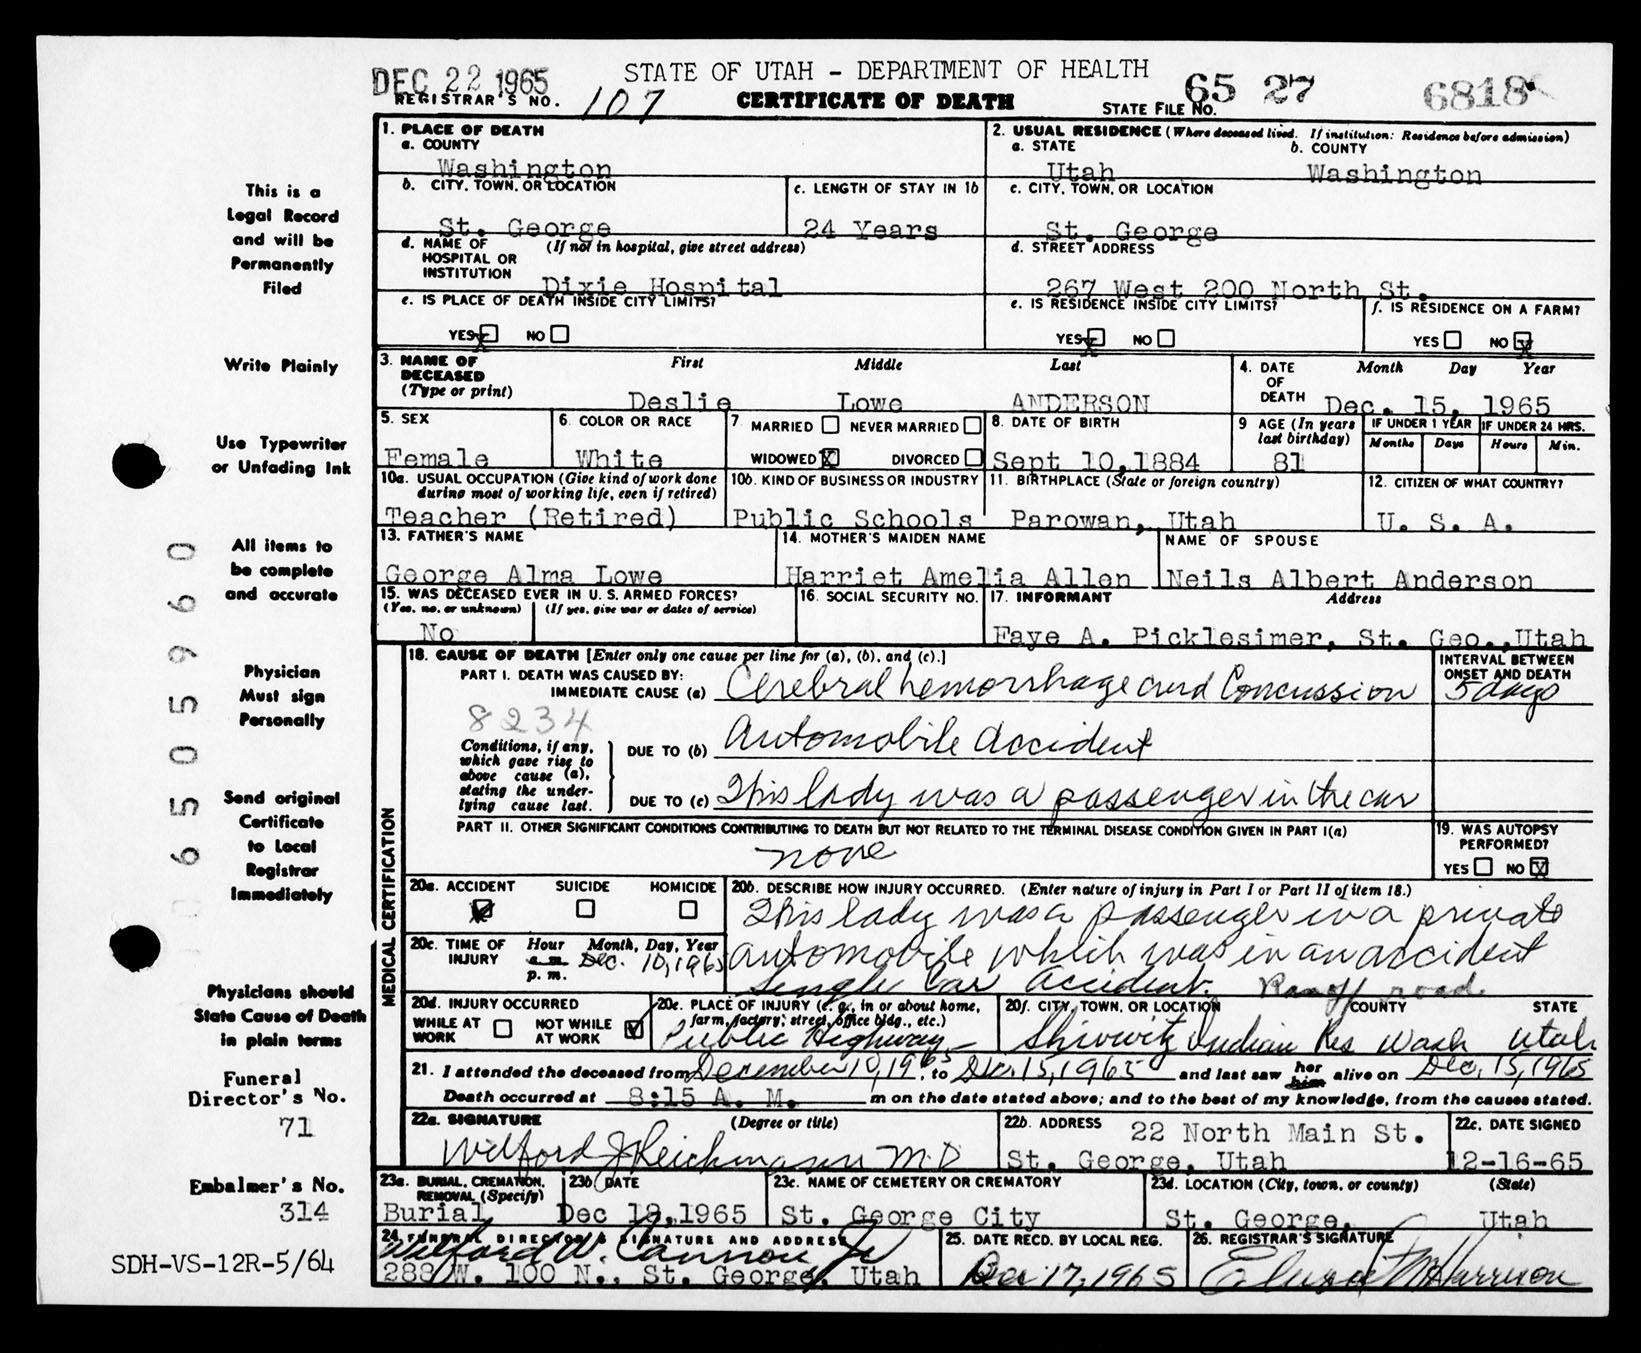 DEC 22 1965
STATE OF UTAH - DEPARTMENT OF HEALTH
65 27
6818
REGISTRAR'S NO. 107
CERTIFICATE OF DEATH
STATE FILE NO.
This is a
Legal Record
and will be
Permanently
Filed
Write Plainly
Use Typewriter
or Unfading Ink
All items to
be complete
and accurate
Physician
Must sign
Personally
Send original
Certificate
to Local
Registrar
Immediately
Physicians should
State Cause of Death
in plain terms
Funeral
Director's No.
71
Embalmer's No.
314
SDH-VS-12R-5/64
065050960
1. PLACE OF DEATH
a. COUNTY
Washington
2. USUAL RESIDENCE (Where deceased lived. If institution: Residence before admission)
a. STATE
Utah
b. COUNTY
Washington
b. CITY, TOWN, OR LOCATION
St. George
c. LENGTH OF STAY IN 1b
24 Years
c. CITY, TOWN, OR LOCATION
St. George
d. NAME OF HOSPITAL OR INSTITUTION
(If not in hospital, give street address)
Dixie Hospital
d. STREET ADDRESS
267 West 200 North St.
e. IS PLACE OF DEATH INSIDE CITY LIMITS?
YES X NO
e. IS RESIDENCE INSIDE CITY LIMITS?
YES X NO
f. IS RESIDENCE ON A FARM?
YES NO X
3. NAME OF DECEASED (Type or print)
First Middle Last
Deslie Lowe ANDERSON
4. DATE OF DEATH
Month Day Year
Dec. 15, 1965
5. SEX
Female
6. COLOR OR RACE
White
7 MARRIED NEVER MARRIED
WIDOWED X DIVORCED
8. DATE OF BIRTH
Sept 10,1884
9 AGE (In years last birthday)
81
IF UNDER 1 YEAR
Months Days
IF UNDER 24 HRS.
Hours Min.
10a. USUAL OCCUPATION (Give kind of work done during most of working life, even if retired)
Teacher (Retired)
10b. KIND OF BUSINESS OR INDUSTRY
Public Schools
11. BIRTHPLACE (State or foreign country)
Parowan, Utah
12. CITIZEN OF WHAT COUNTRY?
U. S. A.
13. FATHER'S NAME
George Alma Lowe
14. MOTHER'S MAIDEN NAME
Harriet Amelia Allen
NAME OF SPOUSE
Neils Albert Anderson
15. WAS DECEASED EVER IN U. S. ARMED FORCES?
(Yes, no, or unknown) (If yes, give war or dates of service)
No
16. SOCIAL SECURITY NO.
17. INFORMANT Address
Faye A. Picklesimer, St. Geo., Utah
MEDICAL CERTIFICATION
18. CAUSE OF DEATH [Enter only one cause per line for (a), (b), and (c).]
PART I. DEATH WAS CAUSED BY:
IMMEDIATE CAUSE (a) Cerebral hemorrhage and Concussion
INTERVAL BETWEEN ONSET AND DEATH
5 days
8234
Conditions, if any, which gave rise to above cause (a), stating the underlying cause last.
DUE TO (b) Automobile accident
DUE TO (c) This lady was a passenger in the car
PART II. OTHER SIGNIFICANT CONDITIONS CONTRIBUTING TO DEATH BUT NOT RELATED TO THE TERMINAL DISEASE CONDITION GIVEN IN PART I(a)
none
19. WAS AUTOPSY PERFORMED?
YES NO X
20a. ACCIDENT SUICIDE HOMICIDE
20b. DESCRIBE HOW INJURY OCCURRED. (Enter nature of injury in Part I or Part II of item 18.)
This lady was a passenger in a private
automobile which was in an accident
Single Car Accident. Ran off road.
20c. TIME OF INJURY
Hour Month, Day, Year
a. m. Dec. 10, 1965
p. m.
20d. INJURY OCCURRED
WHILE AT WORK NOT WHILE AT WORK
20e. PLACE OF INJURY (e. g., in or about home, farm, factory, street, office bldg., etc.)
Public Highway
20f. CITY, TOWN, OR LOCATION COUNTY STATE
Shivwitz Indian Res Wash Utah
21. I attended the deceased from December 10, 1965, to Dec. 15, 1965 and last saw her him alive on Dec. 15, 1965
Death occurred at 8:15 A. M. m on the date stated above; and to the best of my knowledge, from the causes stated.
22a. SIGNATURE (Degree or title)
Wilford J Reichmann M D
22b. ADDRESS 22 North Main St.
St. George, Utah
22c. DATE SIGNED
12-16-65
23a. BURIAL, CREMATION, REMOVAL (Specify)
Burial
23b DATE
Dec 18,1965
23c. NAME OF CEMETERY OR CREMATORY
St. George City
23d. LOCATION (City, town, or county) (State)
St. George, Utah
24. FUNERAL DIRECTOR'S SIGNATURE AND ADDRESS
Wilford W. Cannon Jr
288 W. 100 N., St. George, Utah
25. DATE RECD. BY LOCAL REG.
Dec 17, 1965
26. REGISTRAR'S SIGNATURE
Harrison